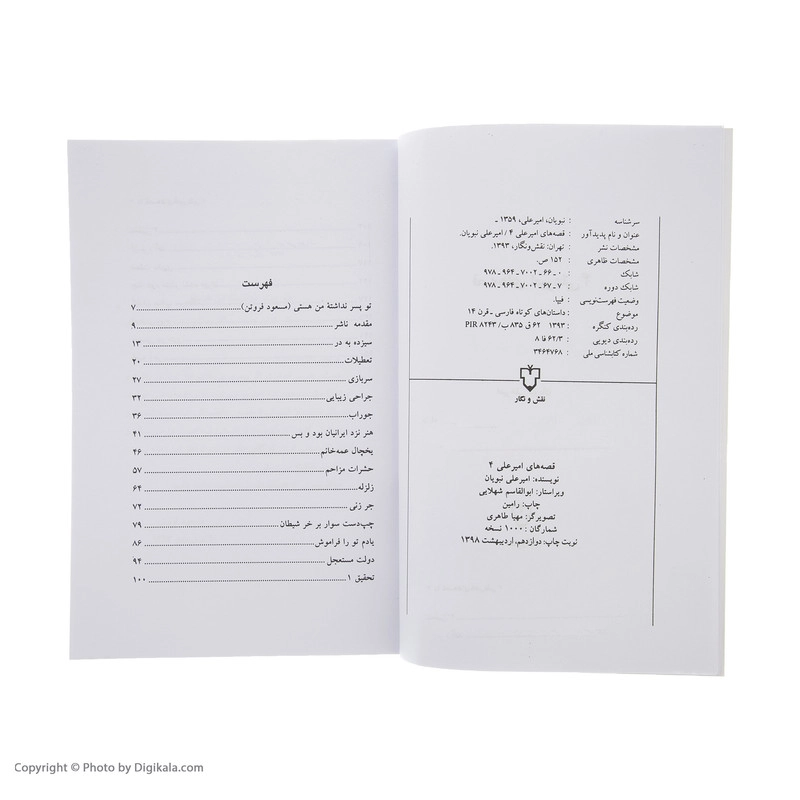 سرشناسه : نبویان، امیرعلی، ۱۳۵۹ ـ
عنوان و نام پدیدآور : قصه‌های امیرعلی ۴ / امیرعلی نبویان.
مشخصات نشر : تهران: نقش‌ونگار، ۱۳۹۳.
مشخصات ظاهری : ۱۵۲ ص.
شابک : ۰ ـ ۶۶ ـ ۷۰۰۲ ـ ۹۶۴ ـ ۹۷۸
شابک دوره : ۷ ـ ۶۷ ـ ۷۰۰۲ ـ ۹۶۴ ـ ۹۷۸
وضعیت فهرست‌نویسی : فیپا.
موضوع : داستان‌های کوتاه فارسی ـ قرن ۱۴
رده‌بندی کنگره : ۱۳۹۳ ۶۲ ق ۸۳۵ ب/ PIR ۸۲۴۳
رده‌بندی دیویی : ۶۲/۳ فا ۸
شماره کتابشناسی ملی : ۳۴۶۴۷۶۸
نقش و نگار
قصه‌های امیرعلی ۴
نویسنده: امیرعلی نبویان
ویراستار: ابوالقاسم شهلایی
چاپ: رامین
تصویرگر: مهیا طاهری
شمارگان: ۱۰۰۰ نسخه
نوبت چاپ: دوازدهم، اردیبهشت ۱۳۹۸
فهرست
تو پسر نداشتهٔ من هستی (مسعود فروتن) ........ ۷
مقدمه ناشر ........ ۹
سیزده به در ........ ۱۳
تعطیلات ........ ۲۰
سربازی ........ ۲۷
جراحی زیبایی ........ ۳۲
جوراب ........ ۳۶
هنر نزد ایرانیان بود و بس ........ ۴۱
یخچال عمه‌خانم ........ ۴۶
حشرات مزاحم ........ ۵۷
زلزله ........ ۶۴
جر زنی ........ ۷۲
چپ‌دست سوار بر خر شیطان ........ ۷۹
یادم تو را فراموش ........ ۸۶
دولت مستعجل ........ ۹۴
تحقیق ۱ ........ ۱۰۰
Copyright © Photo by Digikala.com